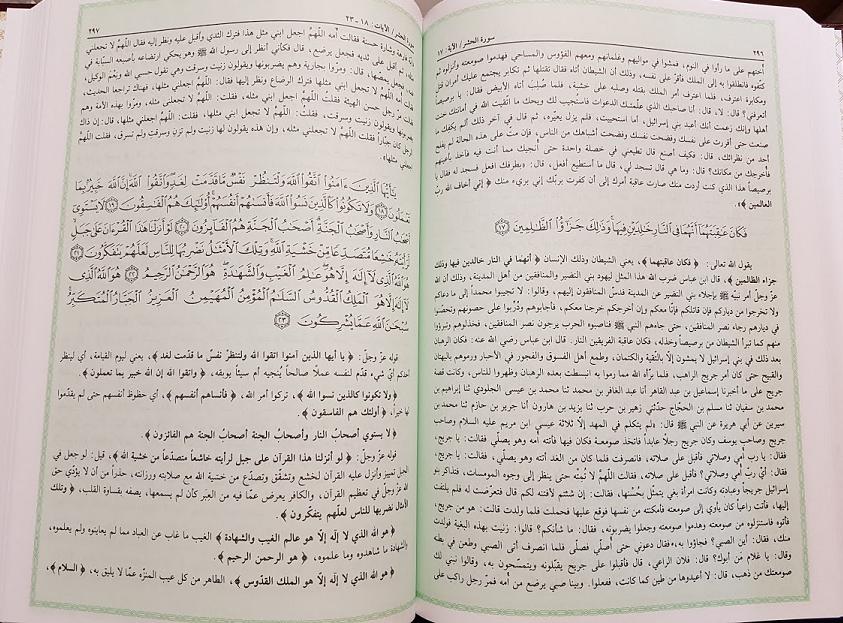 ٢٩٦
سورة الحشر / الآية: ١٧
أختهم على ما رأوا في النوم، فمشوا في مواليهم وغلمانهم ومعهم الفؤوس والمساحي فهدموا صومعته وأنزلوه ثم
كتّفوه فانطلقوا به إلى الملك فأقرّ على نفسه، وذلك أن الشيطان أتاه فقال تقتلها ثم تكابر يجتمع عليك أمران قتل
ومكابرة اعترف، فلما اعترف أمر الملك بقتله وصلبه على خشبة، فلما صُلبت أتاه الأبيض فقال: يا برصيصا
أتعرفني؟ قال: لا، قال: أنا صاحبك الذي علّمتك الدعوات فاستجيب لك ويحك ما اتقيت الله في أمانتك خنت
أهلها وإنك زعمت أنك أعبد بني إسرائيل، أما استحييت، فلم يزل يعيّره، ثم قال في آخر ذلك ألم يكفك ما
صنعت حتى أقررت على نفسك وفضحت نفسك وفضحت أشباهك من الناس، فإن متّ على هذه الحالة لم يفلح
أحد من نظرائك، قال: فكيف أصنع قال تطيعني في خصلة واحدة حتى أنجيك مما أنت فيه فآخذ بأعينهم
فأخرجك من مكانك؟ قال: وما هي قال تسجد لي، قال: ما أستطيع أفعل، قال: بطرفك افعل فسجد له فقال يا
برصيصا هذا الذي كنت أردت منك صارت عاقبة أمرك إلى أن كفرت بربّك إني بريء منك ﴿ إني أخاف الله ربّ
العالمين ﴾.
فَكَانَ عَـٰقِبَتَهُمَآ أَنَّهُمَا فِى ٱلنَّارِ خَـٰلِدَيْنِ فِيهَا ۚ وَذَٰلِكَ جَزَٰٓؤُا۟ ٱلظَّـٰلِمِينَ ﴿١٧﴾
يقول الله تعالى: ﴿ فكان عاقبتهما ﴾، يعني الشيطان وذلك الإنسان ﴿ أنهما في النار خالدين فيها وذلك
جزاء الظالمين ﴾، قال ابن عباس ضرب الله هذا المثل ليهود بني النضير والمنافقين من أهل المدينة، وذلك أن الله
عزّ وجلّ أمر نبيّه ﷺ بإجلاء بني النضير عن المدينة فدسّ المنافقون إليهم، وقالوا: لا تجيبوا محمداً إلى ما دعاكم
ولا تخرجوا من دياركم فإن قاتلكم فإنّا معكم وإن أخرجكم خرجنا معكم، فأجابوهم ودُرّبوا على حصونهم وتحصّنوا
في ديارهم رجاء نصر المنافقين، حتى جاءهم النبي ﷺ فناصبوه الحرب يرجون نصر المنافقين، فخذلوهم وتبرّؤوا
منهم كما تبرأ الشيطان من برصيصا وخذله، فكان عاقبة الفريقين النار. قال ابن عباس رضي الله عنه: فكان الرهبان
بعد ذلك في بني إسرائيل لا يمشون إلّا بالتّقية والكتمان، وطمع أهل الفسوق والفجور في الأحبار ورموهم بالبهتان
والقبيح حتى كان أمر جريج الراهب، فلما برّأه الله مما رموه به انبسطت بعده الرهبان وظهروا للناس، وكانت قصة
جريج على ما أخبرنا إسماعيل بن عبد القاهر أنا عبد الغافر بن محمد ثنا محمد بن عيسى الجلودي ثنا إبراهيم بن
محمد بن سفيان ثنا مسلم بن الحجّاج حدّثني زهير بن حرب ثنا يزيد بن هارون أنا جرير بن حازم ثنا محمد بن
سيرين عن أبي هريرة عن النبي ﷺ قال: «لم يتكلم في المهد إلّا ثلاثة عيسى ابن مريم عليه السلام وصاحب
جريج وصاحب يوسف وكان جريج رجلاً عابداً فاتخذ صومعة فكان فيها فأتته أمه وهو يصلّي فقالت: يا جريج،
فقال: يا رب أمي وصلاتي فأقبل على صلاته، فانصرفت فلما كان من الغد أتته وهو يصلّي، فقالت: يا جريج،
فقال: أيْ ربّ أمي وصلاتي؟ فأقبل على صلاته، فقالت: اللهمّ لا تُمِتْه حتى ينظر إلى وجوه المومسات، فتذاكر بنو
إسرائيل جريجاً وعبادته وكانت امرأة بغي يتمثّل بحُسْنها، فقالت: إن شئتم لأفتنه لكم قال فتعرّضت له فلم يلتفت
إليها، فأتت راعياً كان يأوي إلى صومعته فأمكنته من نفسها فوقع عليها فحملت فلما ولدت قالت: هو من جريج،
فأتوه فاستنزلوه من صومعته وهدموا صومعته وجعلوا يضربونه، فقال: ما شأنكم؟ قالوا: زنيت بهذه البغية فولدت
منك، فقال: أين الصبي؟ فجاؤوا به، فقال دعوني حتى أُصلّي فصلّى فلما انصرف أتى الصبي وطعن في بطنه
وقال: يا غلام مَن أبوك؟ قال: فلان الراعي، قال: فأقبلوا على جريج يقبّلونه ويتمسّحون به، وقالوا نبني لك
صومعتك من ذهب، قال: لا أعيدوها من طين كما كانت، ففعلوا. وبينا صبي يرضع من أمه فمرّ رجل راكب على
سورة الحشر / الآيات: ١٨ - ٢٣
٢٩٧
دابّة فارهة وشارة حسنة فقالت أمه اللهمّ اجعل ابني مثل هذا فترك الثدي وأقبل عليه ونظر إليه فقال اللهمّ لا تجعلني
مثله، ثم أقبل على ثديه فجعل يرضع، قال فكأني أنظر إلى رسول الله ﷺ وهو يحكي ارتضاعه بأصبعه السبّابة في
فمه، فجعل يمصّها، قال: ومرّوا بجارية وهم يضربونها ويقولون زنيت وسرقت وهي تقول حسبي الله ونِعْم الوكيل،
فقالت أمه اللهمّ لا تجعل ابني مثلها فترك الرضاع ونظر إليها فقال: اللهمّ اجعلني مثلها، فهناك تراجعا الحديث،
فقالت مرّ رجل حسن الهيئة فقلتُ اللهمّ اجعل ابني مثله، فقلت: اللهمّ لا تجعلني مثله، ومرّوا بهذه الأمة وهم
يضربونها ويقولون زنيت وسرقت، فقلتُ: اللهمّ لا تجعل ابني مثلها، فقلت: اللهمّ اجعلني مثلها، قال: إن ذاك
الرجل كان جبّاراً فقلت اللهمّ لا تجعلني مثله، وإن هذه يقولون لها زنيت ولم تزنِ وسرقتِ ولم تسرق، فقلت اللهمّ
اجعلني مثلها».
يَـٰٓأَيُّهَا ٱلَّذِينَ ءَامَنُوا۟ ٱتَّقُوا۟ ٱللَّهَ وَلْتَنظُرْ نَفْسٌ مَّا قَدَّمَتْ لِغَدٍ ۖ وَٱتَّقُوا۟ ٱللَّهَ ۚ إِنَّ ٱللَّهَ خَبِيرٌۢ بِمَا
تَعْمَلُونَ ﴿١٨﴾ وَلَا تَكُونُوا۟ كَٱلَّذِينَ نَسُوا۟ ٱللَّهَ فَأَنسَىٰهُمْ أَنفُسَهُمْ ۚ أُو۟لَـٰٓئِكَ هُمُ ٱلْفَـٰسِقُونَ ﴿١٩﴾ لَا يَسْتَوِىٓ
أَصْحَـٰبُ ٱلنَّارِ وَأَصْحَـٰبُ ٱلْجَنَّةِ ۚ أَصْحَـٰبُ ٱلْجَنَّةِ هُمُ ٱلْفَآئِزُونَ ﴿٢٠﴾ لَوْ أَنزَلْنَا هَـٰذَا ٱلْقُرْءَانَ عَلَىٰ جَبَلٍ
لَّرَأَيْتَهُۥ خَـٰشِعًا مُّتَصَدِّعًا مِّنْ خَشْيَةِ ٱللَّهِ ۚ وَتِلْكَ ٱلْأَمْثَـٰلُ نَضْرِبُهَا لِلنَّاسِ لَعَلَّهُمْ يَتَفَكَّرُونَ ﴿٢١﴾
هُوَ ٱللَّهُ ٱلَّذِى لَآ إِلَـٰهَ إِلَّا هُوَ ۖ عَـٰلِمُ ٱلْغَيْبِ وَٱلشَّهَـٰدَةِ ۖ هُوَ ٱلرَّحْمَـٰنُ ٱلرَّحِيمُ ﴿٢٢﴾ هُوَ ٱللَّهُ ٱلَّذِى
لَآ إِلَـٰهَ إِلَّا هُوَ ٱلْمَلِكُ ٱلْقُدُّوسُ ٱلسَّلَـٰمُ ٱلْمُؤْمِنُ ٱلْمُهَيْمِنُ ٱلْعَزِيزُ ٱلْجَبَّارُ ٱلْمُتَكَبِّرُ ۚ
سُبْحَـٰنَ ٱللَّهِ عَمَّا يُشْرِكُونَ ﴿٢٣﴾
قوله عزّ وجلّ: ﴿ يا أيها الذين آمنوا اتقوا الله ولتنظرْ نفسٌ ما قدّمت لغد ﴾، يعني ليوم القيامة، أي لينظر
أحدكم أيّ شيء قدّم لنفسه عملًا صالحاً يُنجيه أم سيئاً يوبقه، ﴿ واتقوا الله إن الله خبير بما تعملون ﴾.
﴿ ولا تكونوا كالذين نسوا الله ﴾، تركوا أمر الله، ﴿ فأنساهم أنفسهم ﴾، أي حظوظ أنفسهم حتى لم يقدّموا
لها خيراً، ﴿ أولئك هم الفاسقون ﴾.
﴿ لا يستوي أصحابُ النار وأصحابُ الجنة أصحابُ الجنة هم الفائزون ﴾.
قوله عزّ وجلّ: ﴿ لو أنزلنا هذا القرآن على جبل لرأيته خاشعاً متصدّعاً من خشية الله ﴾، قيل: لو جعل في
الجبل تمييز وأنزل عليه القرآن لخشع وتشقّق وتصدّع من خشية الله مع صلابته ورزانته، حذراً من أن لا يؤدّي حق
الله عزّ وجلّ في تعظيم القرآن، والكافر يعرض عمّا فيه من العِبَر كأن لم يسمعها، يصفه بقساوة القلب، ﴿ وتلك
الأمثال نضربها للناس لعلّهم يتفكّرون ﴾.
﴿ هو الله الذي لا إله إلّا هو عالم الغيب والشهادة ﴾ الغيب ما غاب عن العباد مما لم يعاينوه ولم يعلموه،
والشهادة ما شاهدوه وما علموه، ﴿ هو الرحمن الرحيم ﴾.
﴿ هو الله الذي لا إله إلّا هو الملك القدّوس ﴾، الطاهر من كل عيب المنزّه عمّا لا يليق به، ﴿ السلام ﴾،